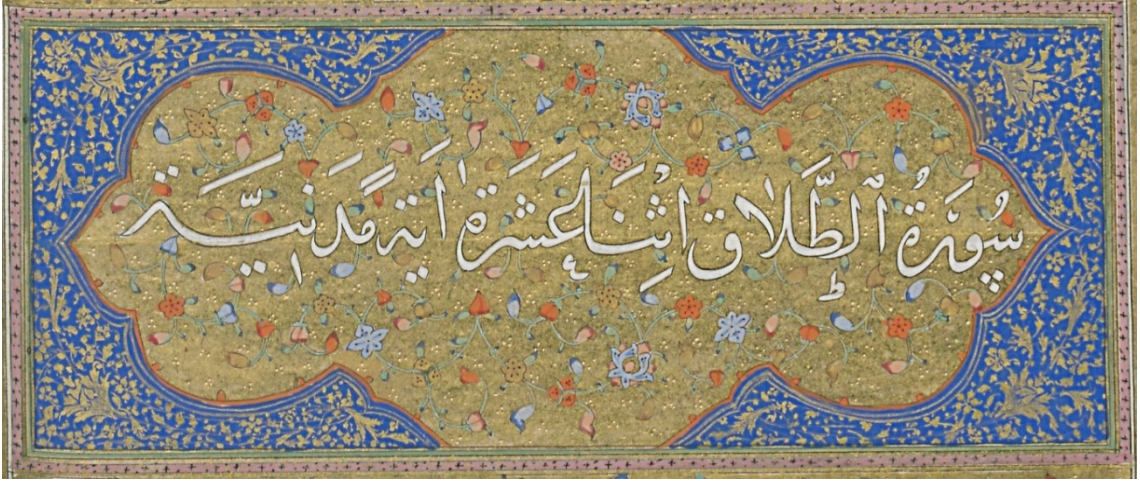 سُورَةُ الطَّلَاق اثِنَا عَشَرَةَ اٰيَةً مَدَنِيَّةً